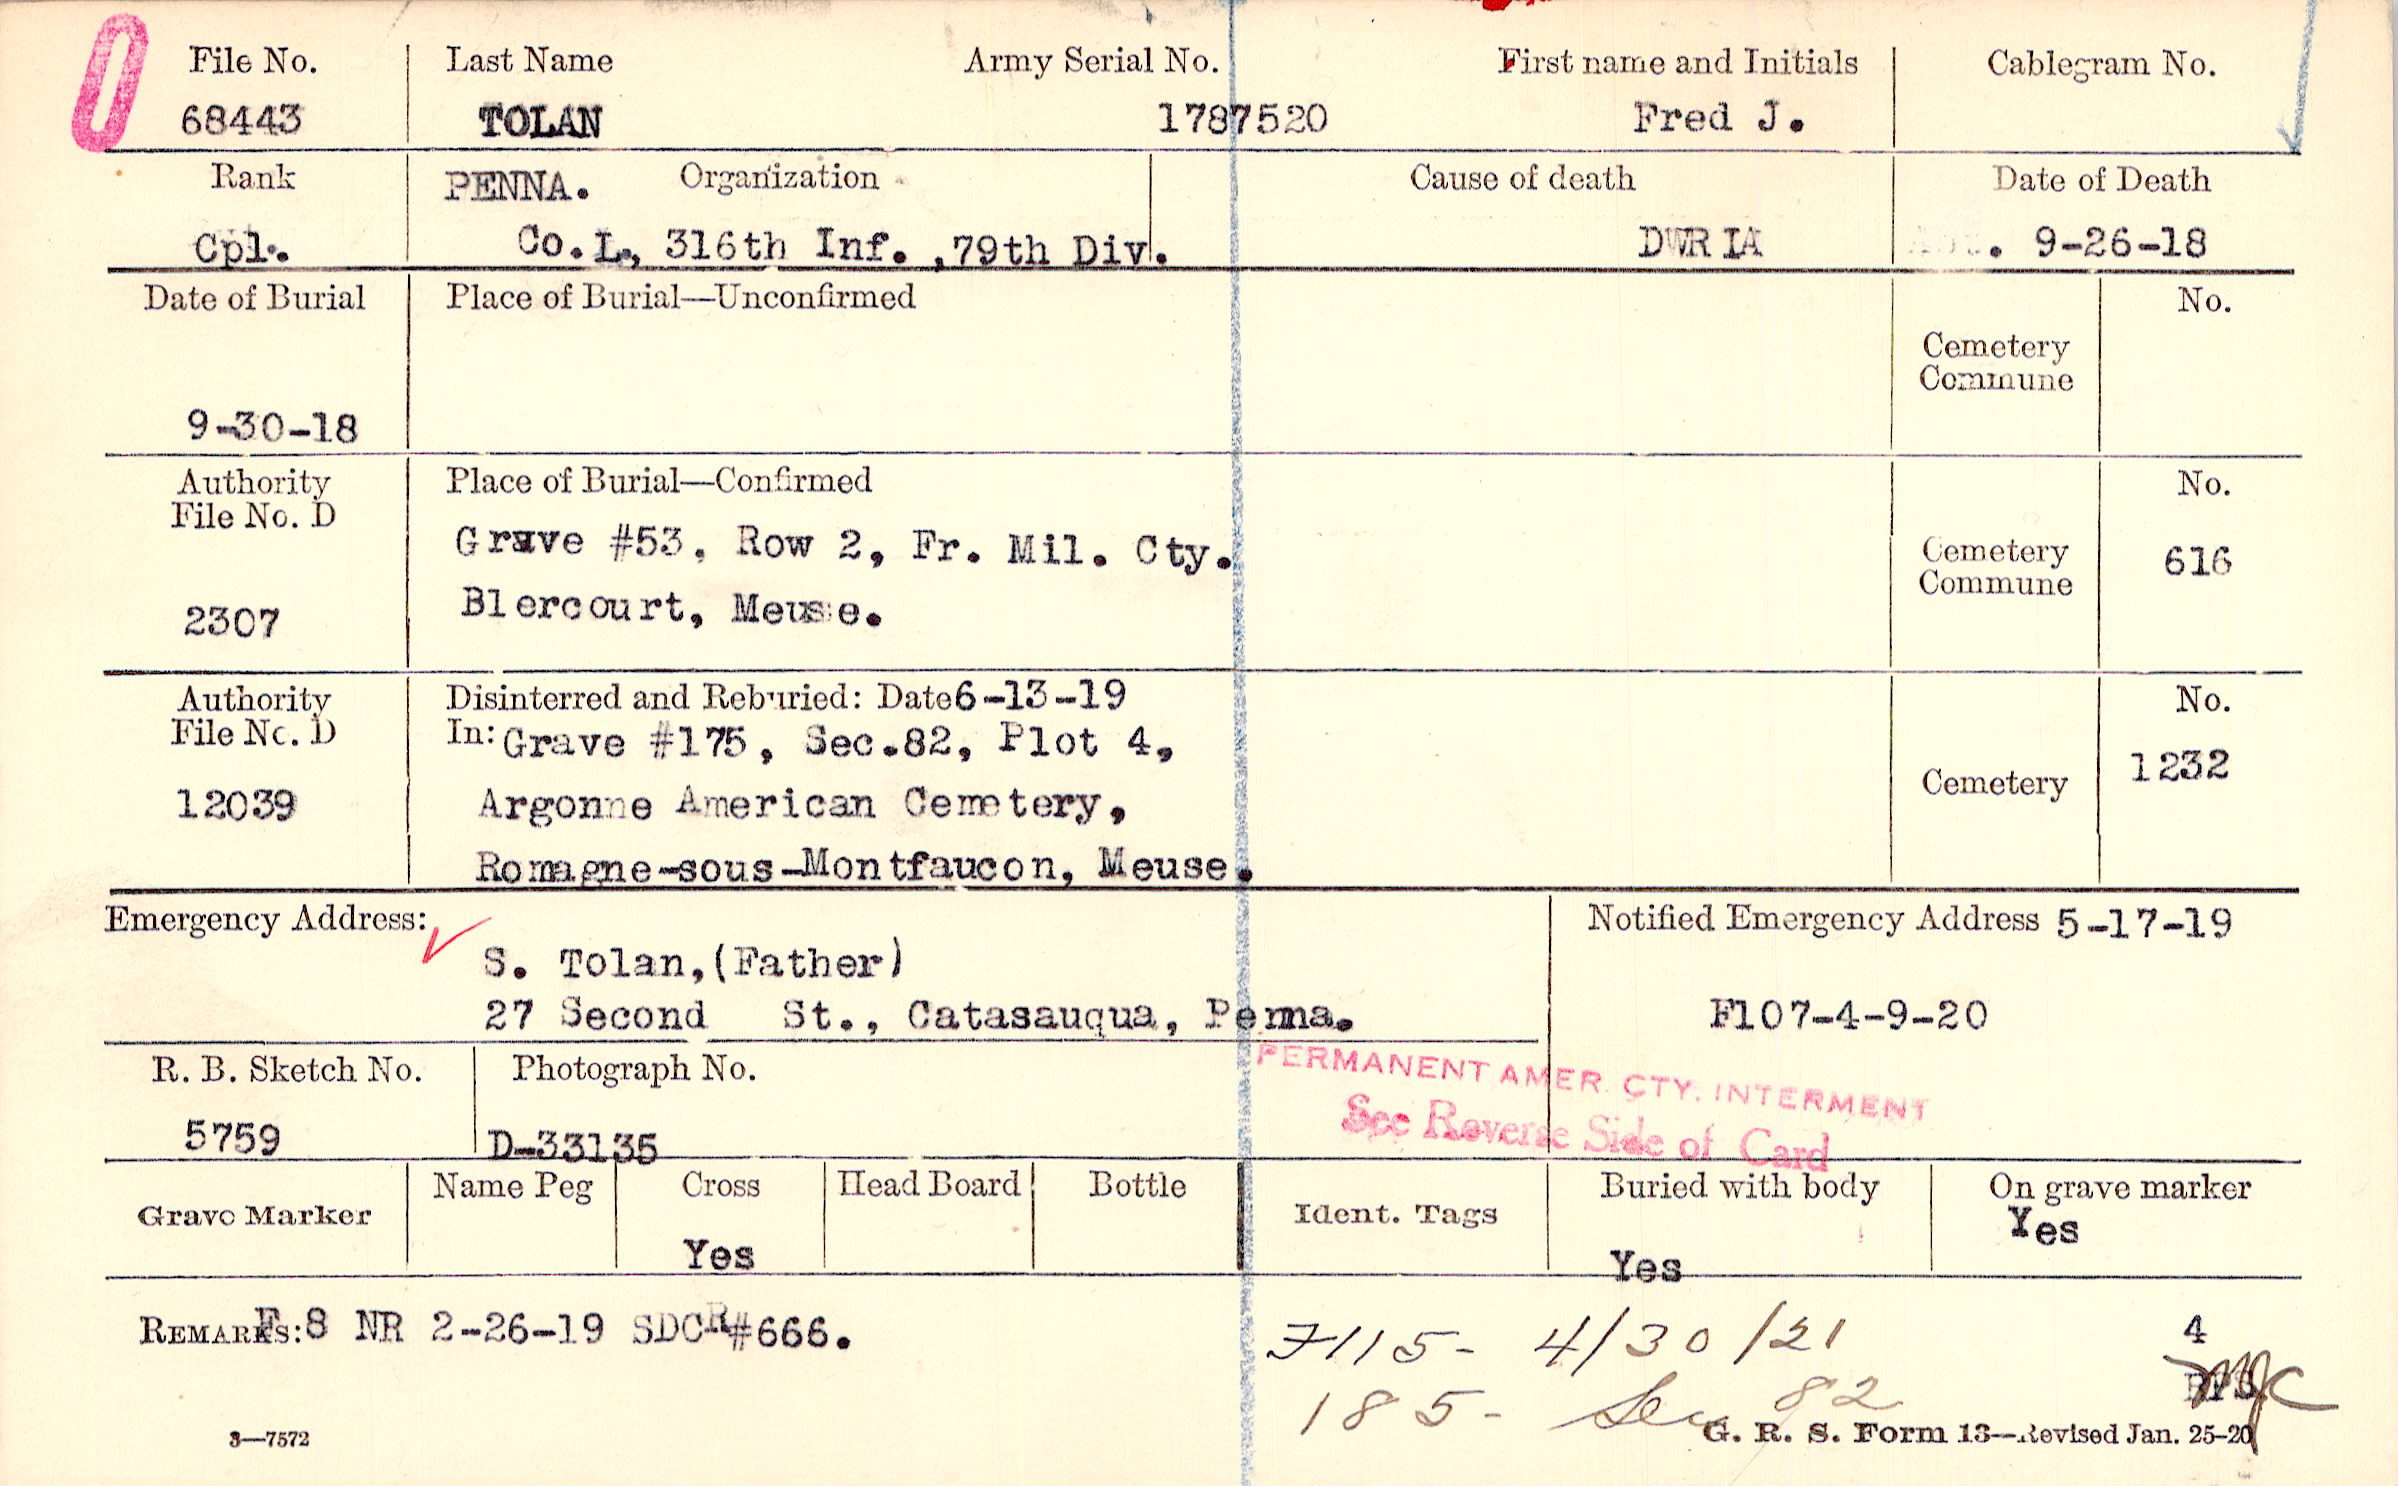 File No. Last Name Army Serial No. First name and Initials Cablegram No.
68443 TOLAN 1787520 Fred J.
Rank PENNA. Organization Cause of death Date of Death
Cpl. Co. L., 316th Inf. ,79th Div. DWRIA . 9-26-18
Date of Burial Place of Burial—Unconfirmed No.
Cemetery
Commune
9-30-18
Authority Place of Burial—Confirmed No.
File No. D
Grave #53, Row 2, Fr. Mil. Cty. Cemetery 616
Commune
2307 Blercourt, Meuse.
Authority Disinterred and Reburied: Date 6-13-19 No.
File No. D In: Grave #175, Sec.82, Plot 4,
Cemetery 1232
12039 Argonne American Cemetery,
Romagne-sous-Montfaucon, Meuse.
Emergency Address: Notified Emergency Address 5-17-19
S. Tolan,(Father)
27 Second St., Catasauqua, Penna. F107-4-9-20
R. B. Sketch No. Photograph No. PERMANENT AMER. CTY. INTERMENT
5759 D-33135 See Reverse Side of Card
Grave Marker Name Peg Cross Head Board Bottle Ident. Tags Buried with body On grave marker
Yes Yes Yes
REMARKS: F.8 NR 2-26-19 SDCR#666. 7115- 4/30/21 4
185- Sec 82
3—7572 G. R. S. Form 13—Revised Jan. 25-20